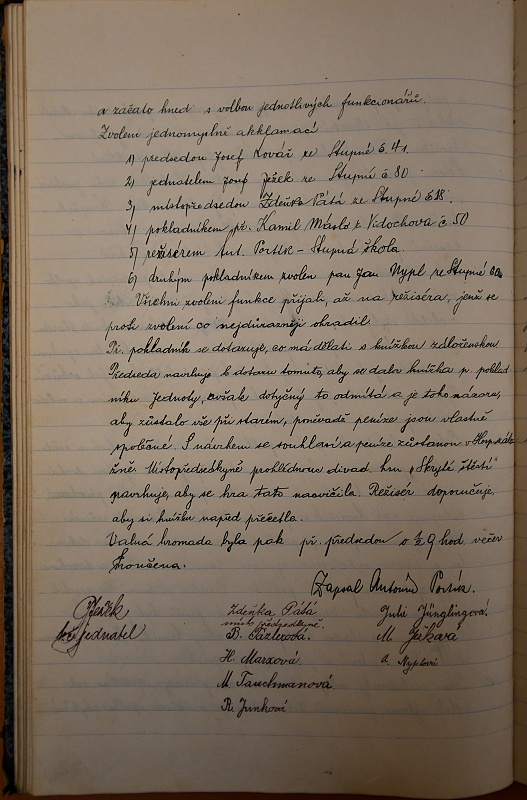 a začato hned s volbou jednotlivých funkcionářů.
Zvoleni jednomyslně akklamací
1) předsedou Josef Kovář ze Stupné č. 41.
2) jednatelem Josef Ježek ze Stupné č. 80
3) místopředsedou Zdeňka Pátá ze Stupné č.
4) pokladníkem př. Kamil Máslo z Vidochova č. 50
5) režisérem Ant. Portík – Stupná škola.
6) druhým pokladníkem zvolen pan Jan Nypl ze Stupné
Všichni zvolení funkce přijali, až na režiséra, jenž se
proti zvolení co nejdůrazněji ohradil.
Př. pokladník se dotazuje, co má dělati s knížkou záloženskou
Předseda navrhuje k dotazu tomuto, aby se dala knížka p. poklad
níku Jednoty, avšak dotyčný to odmítá a je toho názoru,
aby zůstalo vše při starém, poněvadž peníze jsou vlastně
společné. S návrhem se souhlasí a peníze zůstanou v
Místopředsedkyně prohlédnouc divad. hru „Skryté štěstí“
navrhuje, aby se hra tato nacvičila. Režisér doporučuje,
aby si knížku napřed přečetla.
Valná hromada byla pak př. předsedou o ½ 9 hod. večer
skončena.
Zapsal Antonín Portík.
Zdeňka Pátá
místopředsedkyně.
Julie Jünglingová.
jednatel
M. Ježková
H. Marxová
A. Nyplová
M. Tauchmanová
R. Junková